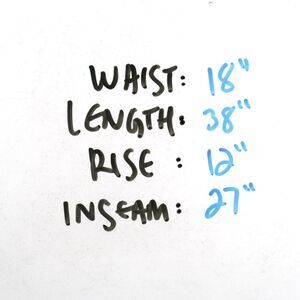 WAIST: 18"
LENGTH: 38"
RISE : 12"
INSEAM: 27"